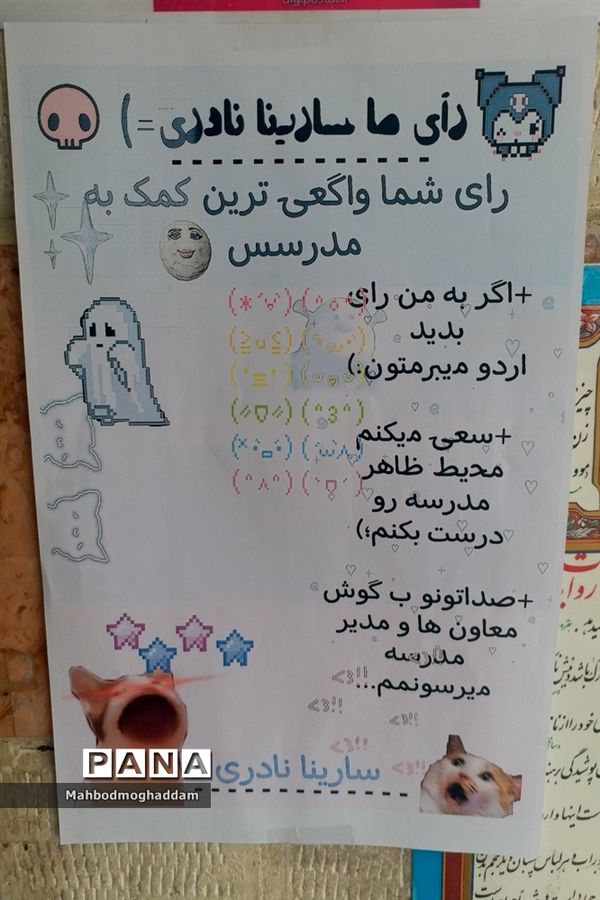 digipostal.ir
رأی ما سارینا نادری=)
رای شما واگعی ترین کمک به
مدرسس
+اگر به من رای
بدید
اردو میبرمتون:)
+سعی میکنم
محیط ظاهر
مدرسه رو
درست بکنم؛)
+صداتونو ب گوش
معاون ها و مدیر
مدرسه
میرسونمم...
<3!!
<3!!
<3!!
<3!!
<3!!
سارینا نادری
PANA
Mahbodmoghaddam